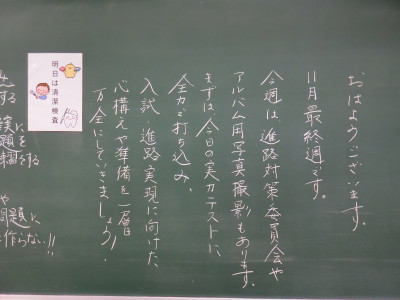 おはようございます。
11月最終週です。
今週は進路対策委員会や
アルバム用写真撮影もあります。
まずは今日の実力テストに
全力で打ち込み、
入試、進路実現に向けた、
心構えや準備を一層
万全にしていきましょう!
明日は清潔検査
する
に
を
をする
や
問題に
作らない!!